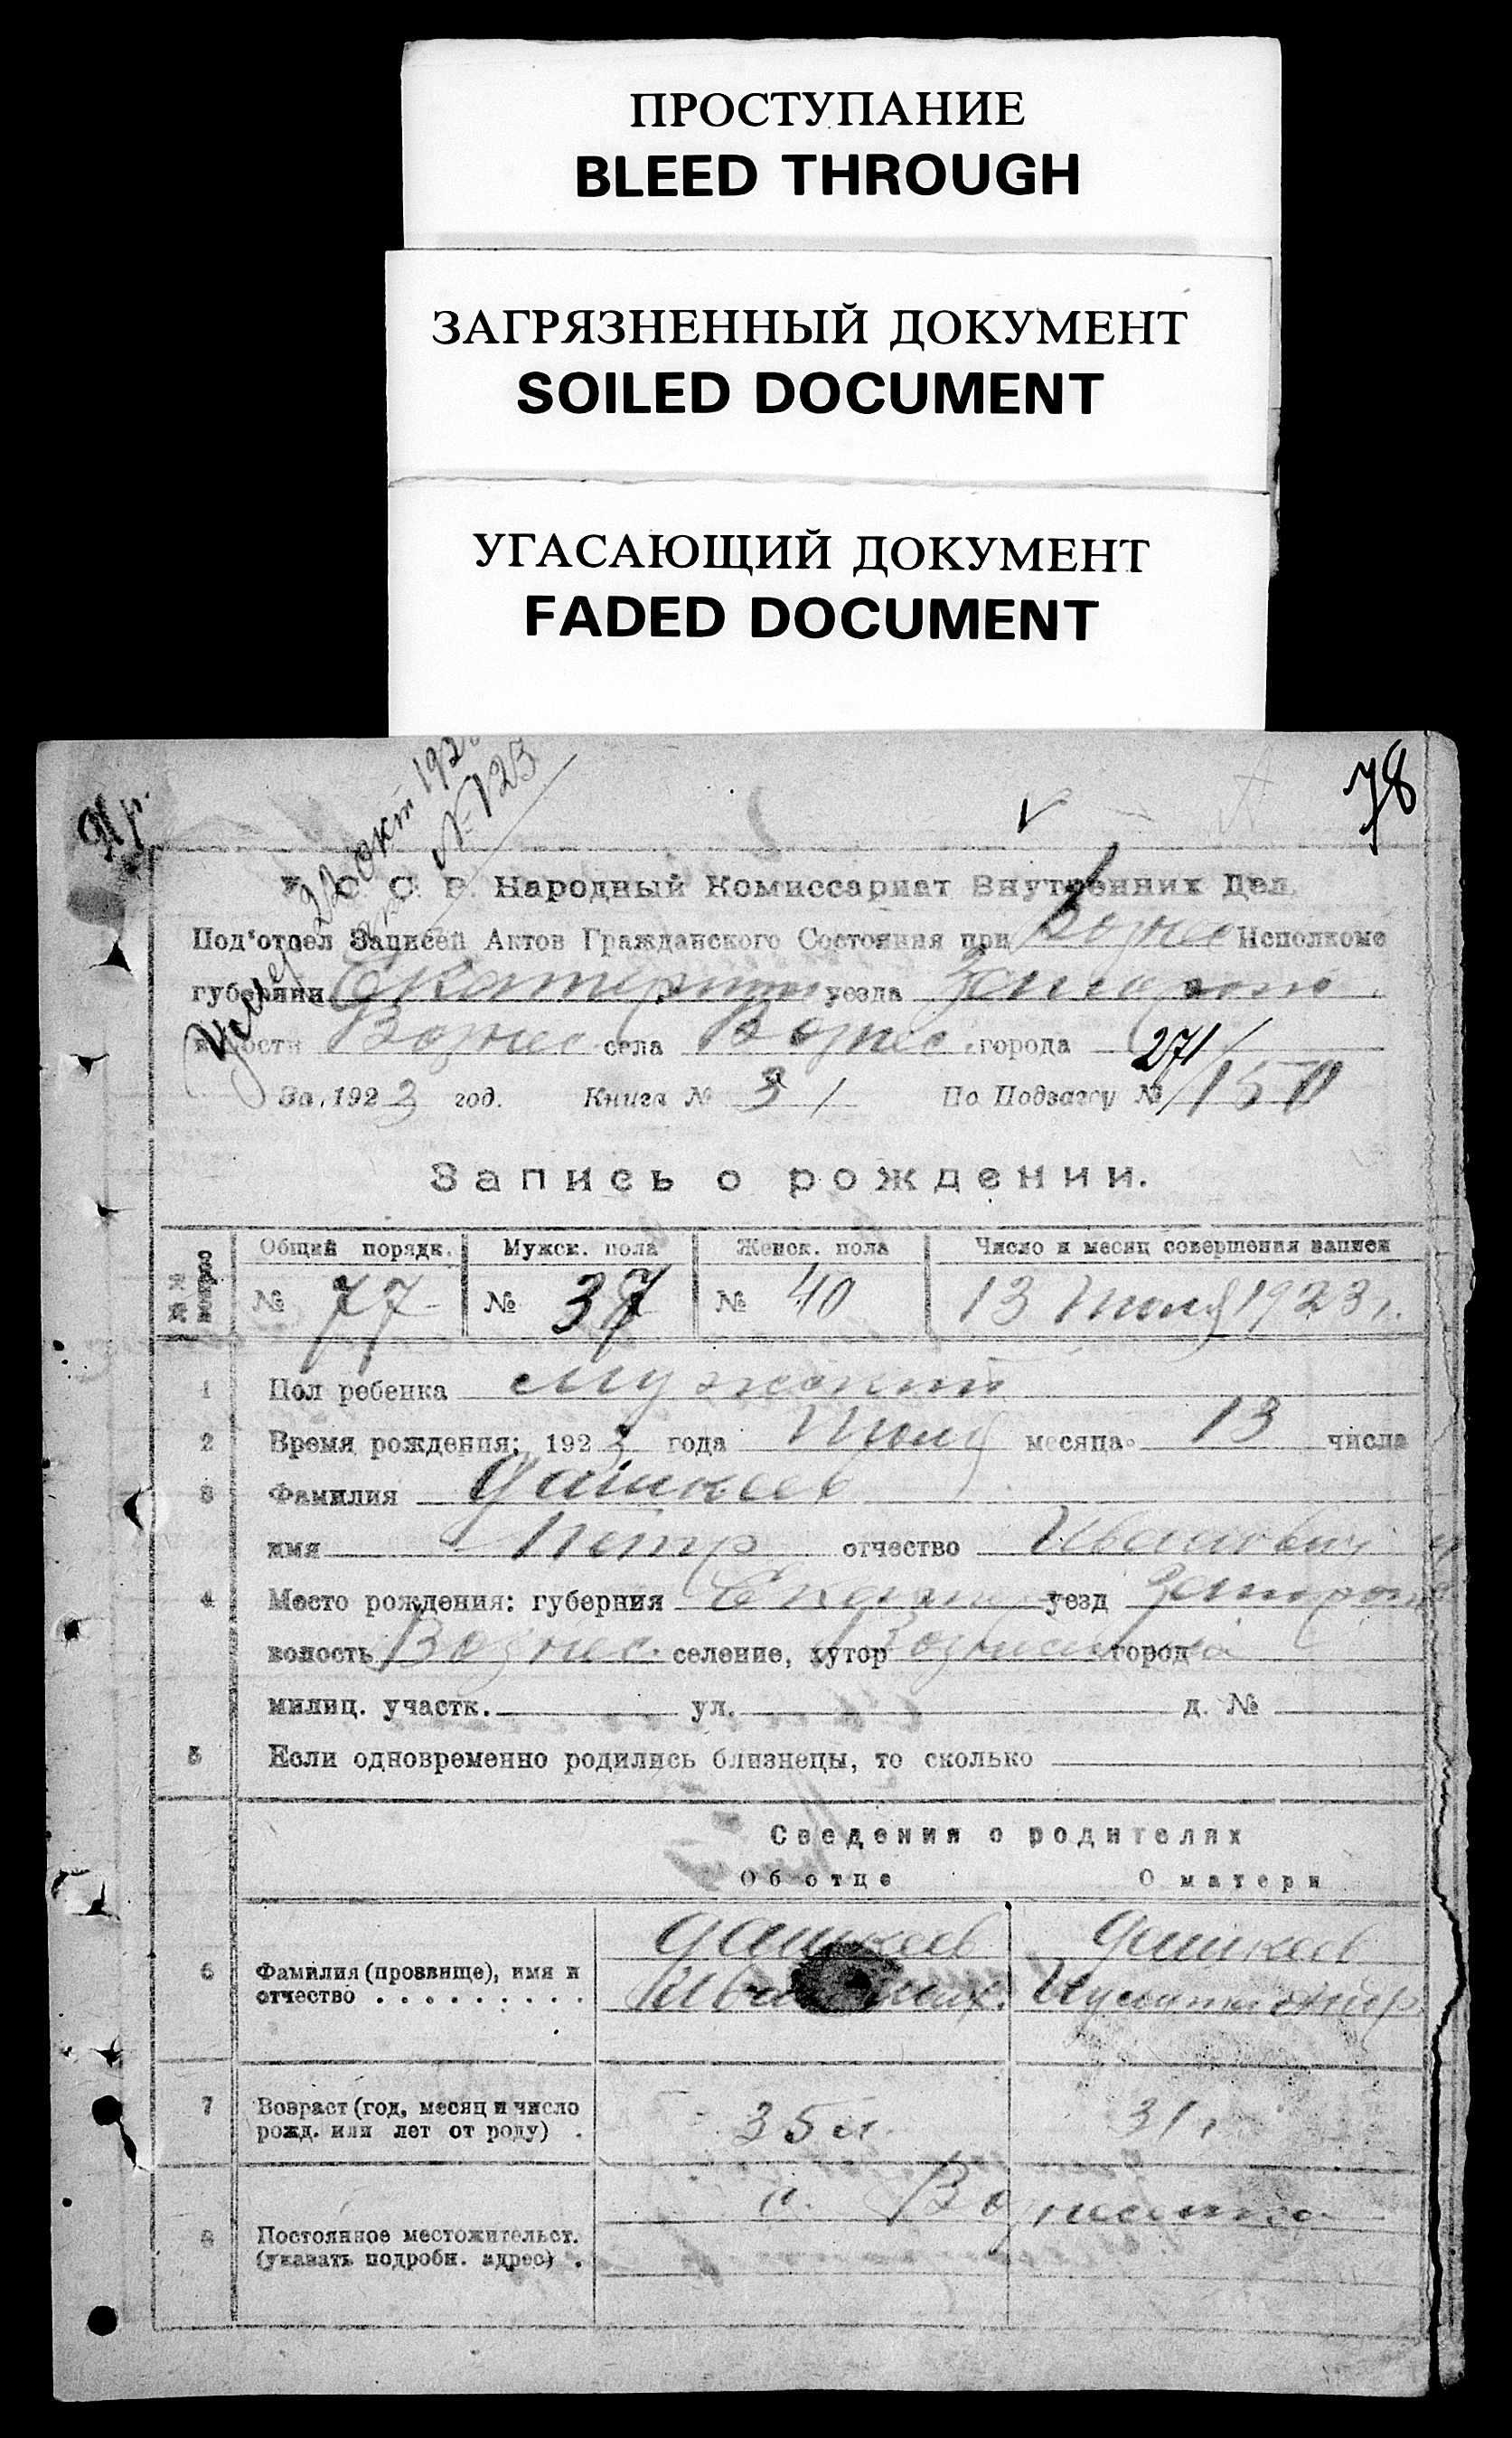 ПРОСТУПАНИЕ
BLEED THROUGH
ЗАГРЯЗНЕННЫЙ ДОКУМЕНТ
SOILED DOCUMENT
УГАСАЮЩИЙ ДОКУМЕНТ
FADED DOCUMENT
78
Умер 22 окт 192
№ 123
У. С. С. Р. Народный Комиссариат Внутренних Дел.
Под'отдел Записей Актов Гражданского Состояния при Вознес Исполкоме
губернии Екатерин уезда Запорож
волости Вознес села Вознес. города
271/
За 1923 год. Книга № 3 1 По Подзагсу № 150
Запись о рождении.
Общий порядк. Мужск. пола Женск. пола Число и месяц совершения записи
№ 77 № 37 № 40 13 Июля 1923 г.
1 Пол ребенка Мужской
2 Время рождения: 1923 года Июля месяца 13 числа
3 Фамилия Дашкеев
имя Петр отчество Иванович
4 Место рождения: губерния Екатер уезд Запорож
волость Вознес. селение, хутор Вознесенка город
милиц. участк. ул. д. №
5 Если одновременно родились близнецы, то сколько
Сведения о родителях
Об отце О матери
6 Фамилия (прозвище), имя и отчество Дашкеев Дашкеев
7 Возраст (год, месяц и число рожд. или лет от роду) 35 л. 31 г.
8 Постоянное местожительст. (указать подробн. адрес) с. Вознесенка